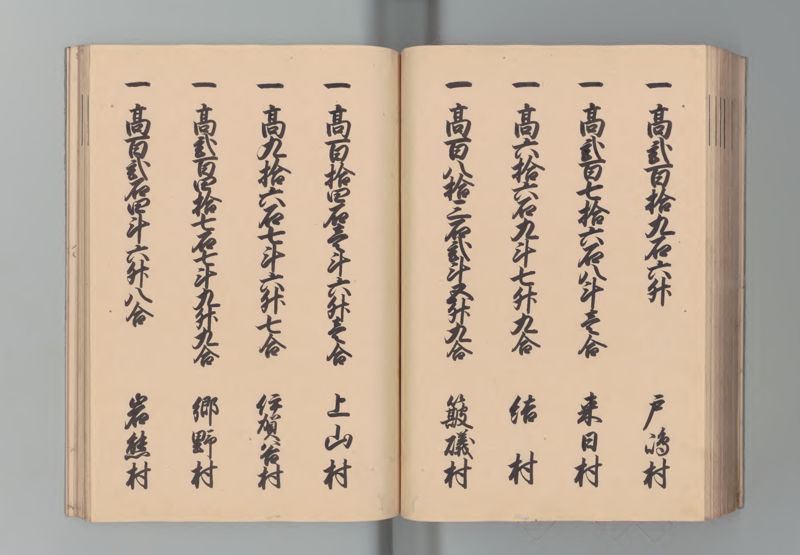 一 高弐百拾九石六升 戸嶋村
一 高弐百七拾六石八斗壱合 来日村
一 高六拾六石九斗七升九合 結村
一 高百八拾三石弐斗五升九合 簸磯村
一 高百拾四石壱斗六升壱合 上山村
一 高九拾六石七斗六升七合 伊賀谷村
一 高弐百四拾七石七斗九升九合 郷野村
一 高百弐石四斗六升八合 岩熊村